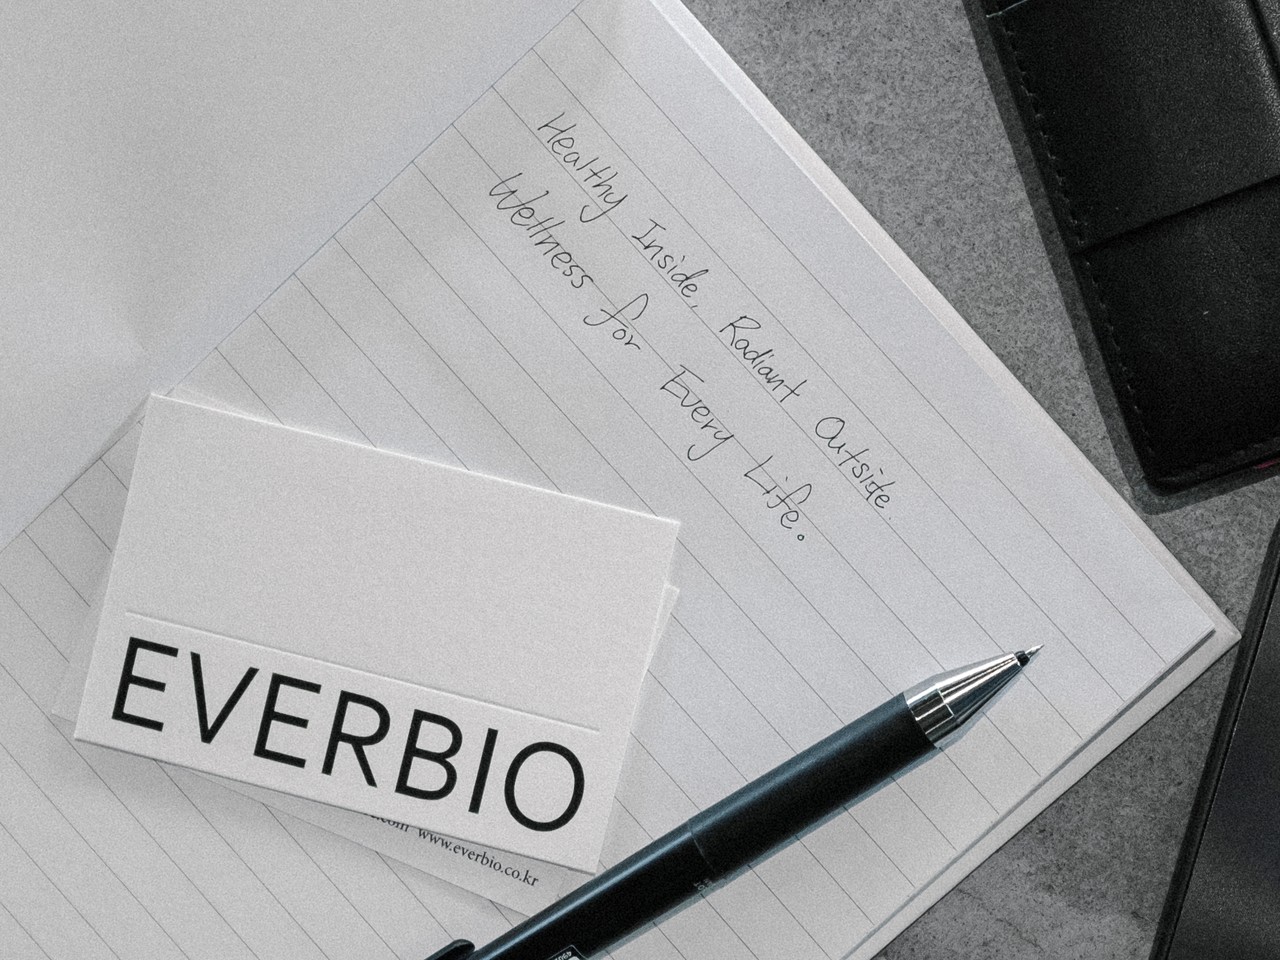 Healthy Inside, Radiant Outside.
Wellness for Every Life.
EVERBIO
www.everbio.co.kr